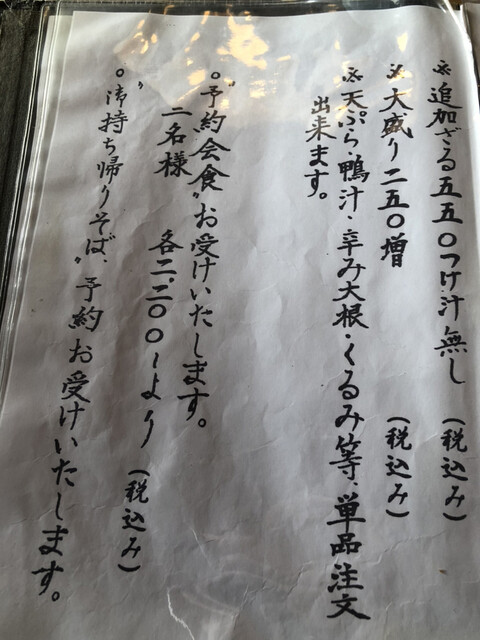 ※追加ざる五五〇つけ汁無し(税込み)
※大盛り二五〇増(税込み)
※天ぷら・鴨汁・辛み大根・くるみ等、単品注文
出来ます。
○〝予約会食〟お受けいたします。
二名様 各二、二〇〇〜より(税込み)
○〝御持ち帰りそば〟予約お受けいたします。